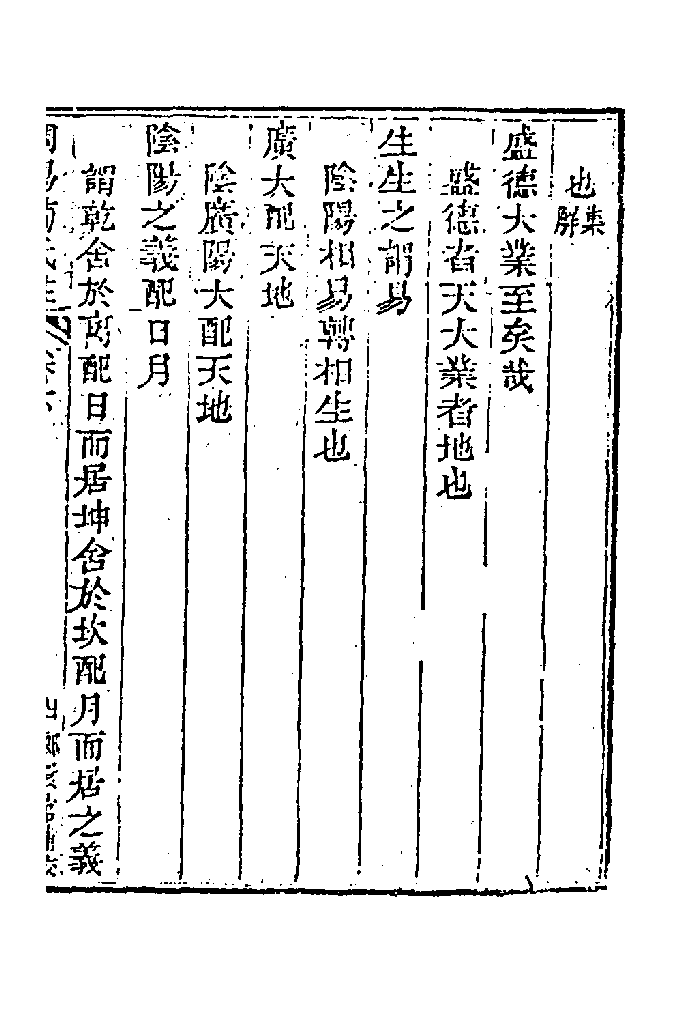 也集解
盛德大業至矣哉
盛德者天大業者地也
生生之謂易
陰陽相易轉相生也
廣大配天地
陰廣陽大配天地
陰陽之義配日月
謂乾舍於离配日而居坤舍於坎配月而居之義